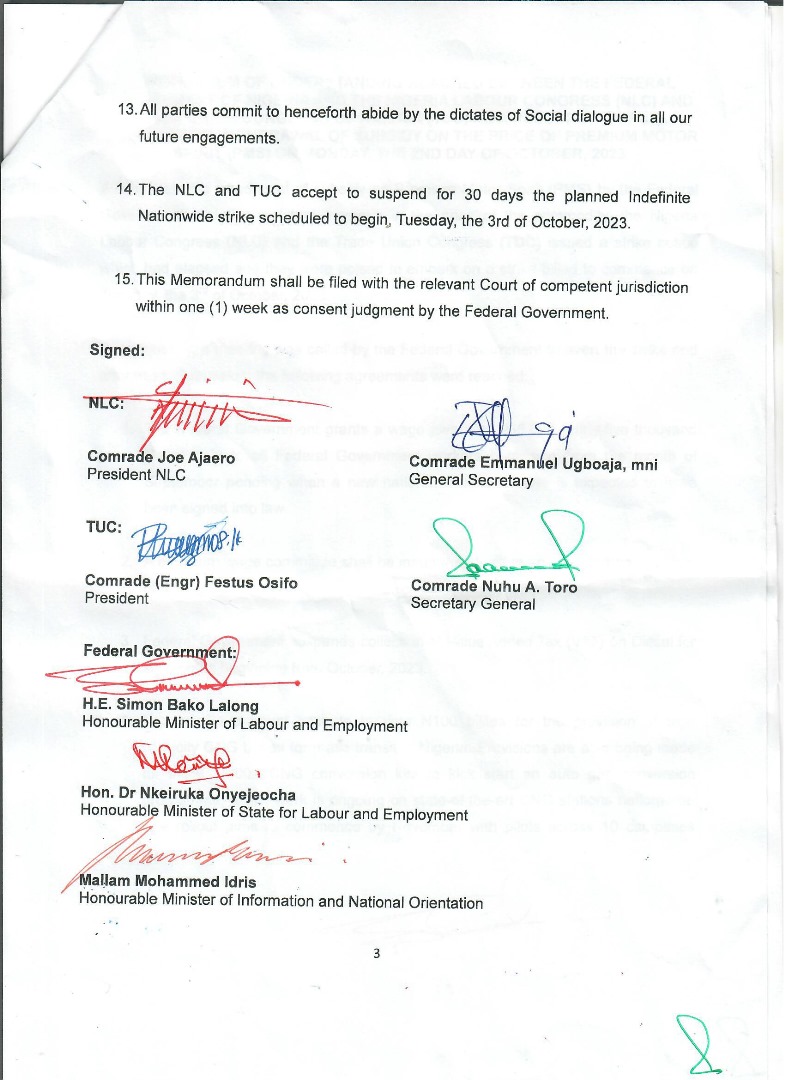 13. All parties commit to henceforth abide by the dictates of Social dialogue in all our
future engagements.
14. The NLC and TUC accept to suspend for 30 days the planned Indefinite
Nationwide strike scheduled to begin, Tuesday, the 3rd of October, 2023.
15. This Memorandum shall be filed with the relevant Court of competent jurisdiction
within one (1) week as consent judgment by the Federal Government.
Signed:
NLC:
Comrade Joe Ajaero
President NLC
Comrade Emmanuel Ugboaja, mni
General Secretary
TUC:
Comrade (Engr) Festus Osifo
President
Comrade Nuhu A. Toro
Secretary General
Federal Government:
H.E. Simon Bako Lalong
Honourable Minister of Labour and Employment
Hon. Dr Nkeiruka Onyejeocha
Honourable Minister of State for Labour and Employment
Mallam Mohammed Idris
Honourable Minister of Information and National Orientation
3